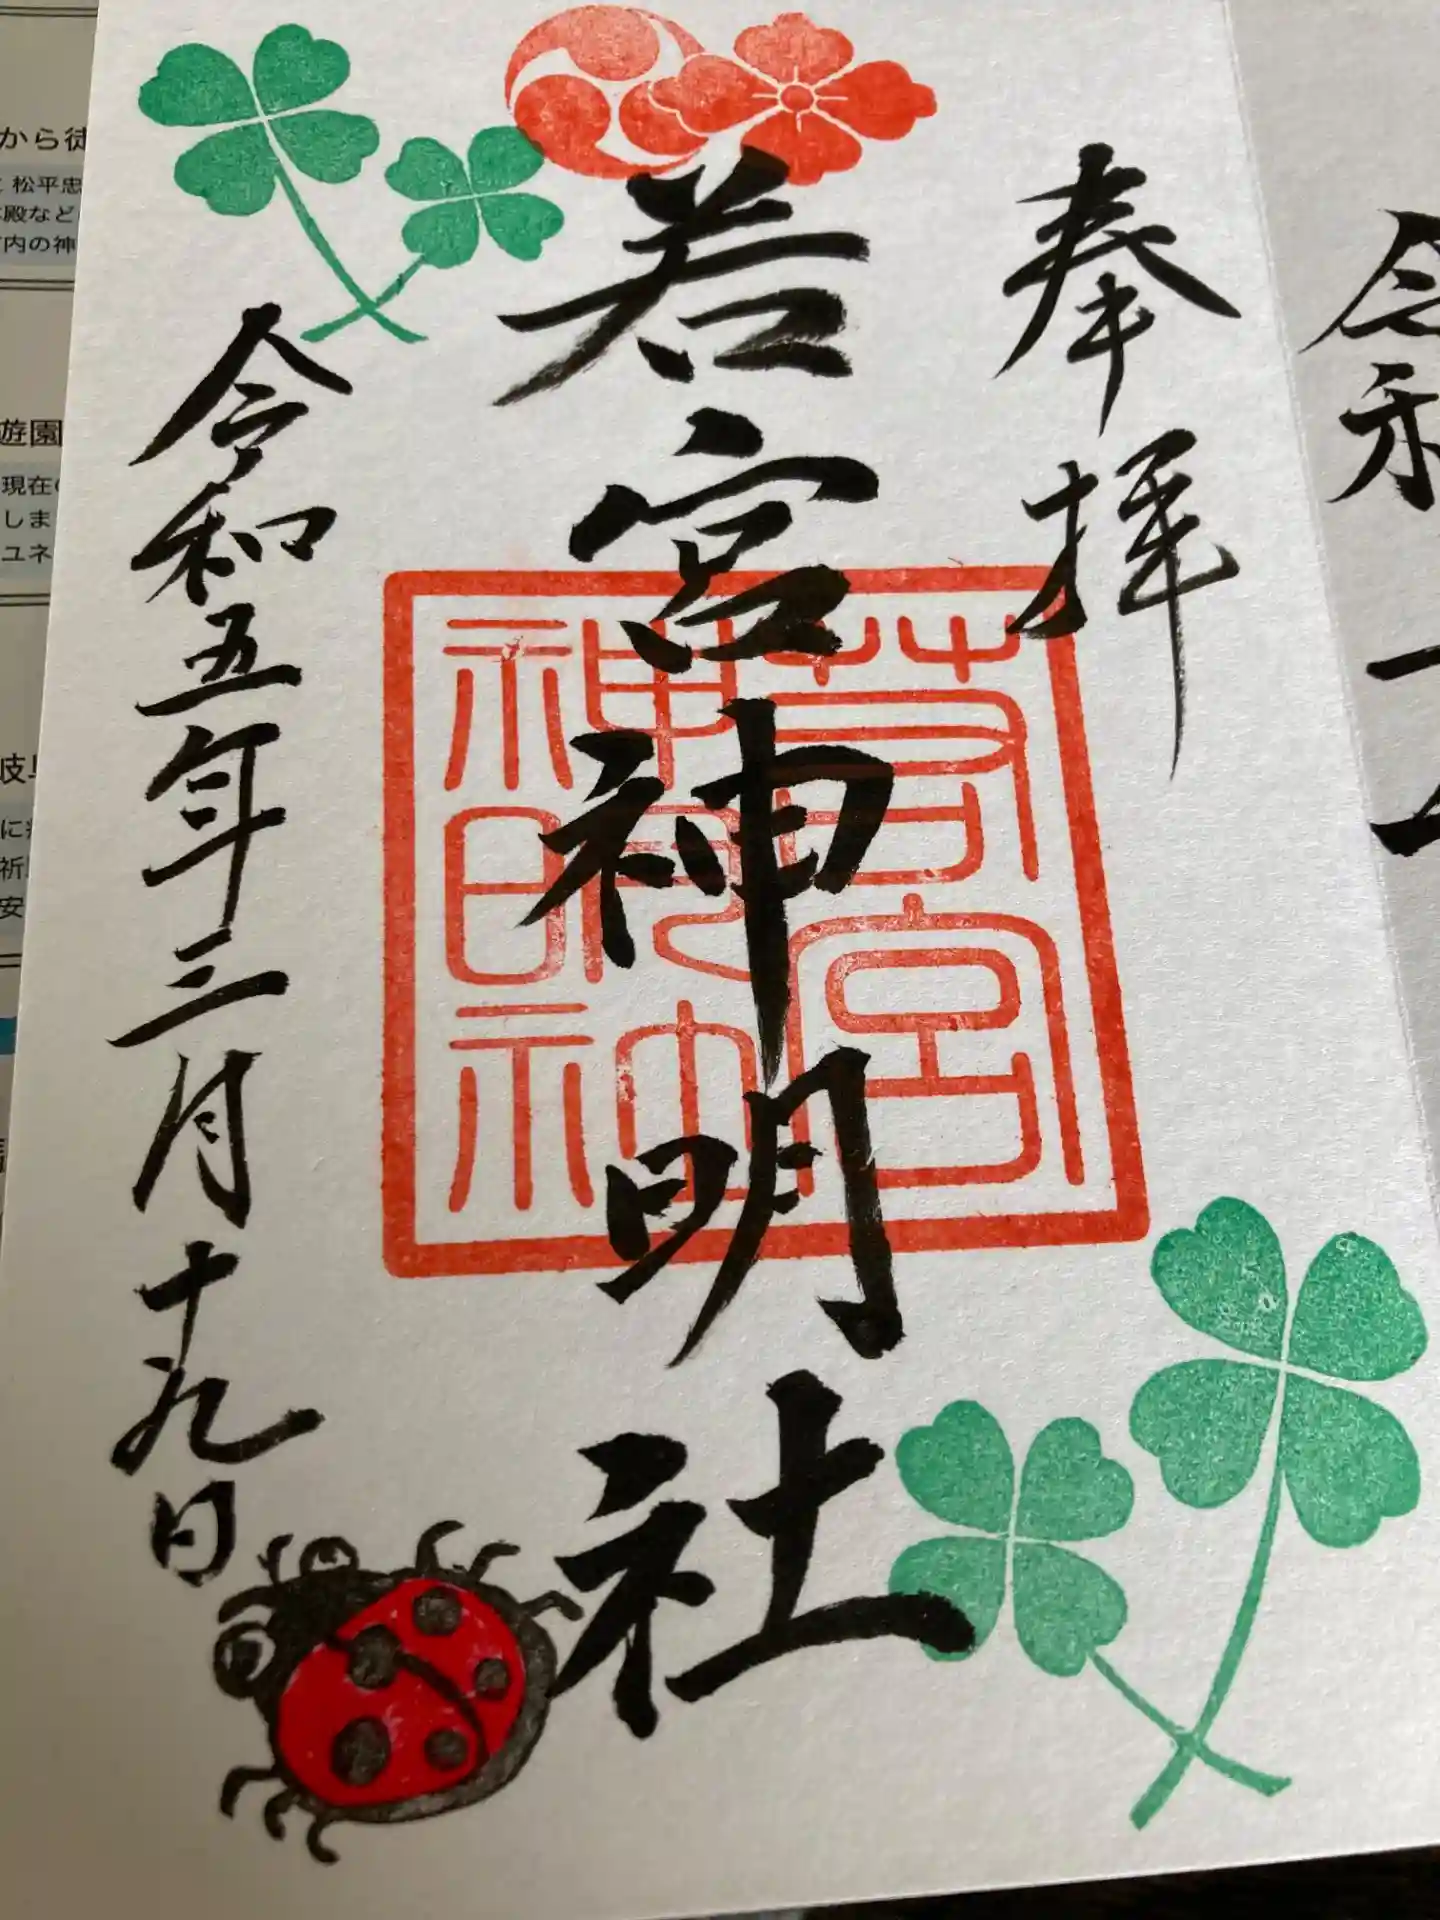 奉拝
若宮神明社
令和五年三月十九日
若宮
神明
神社
令和
から徒
松平忠
殿など
内の神
遊園
現在の
しま
ユネ
岐阜
に
祈
安